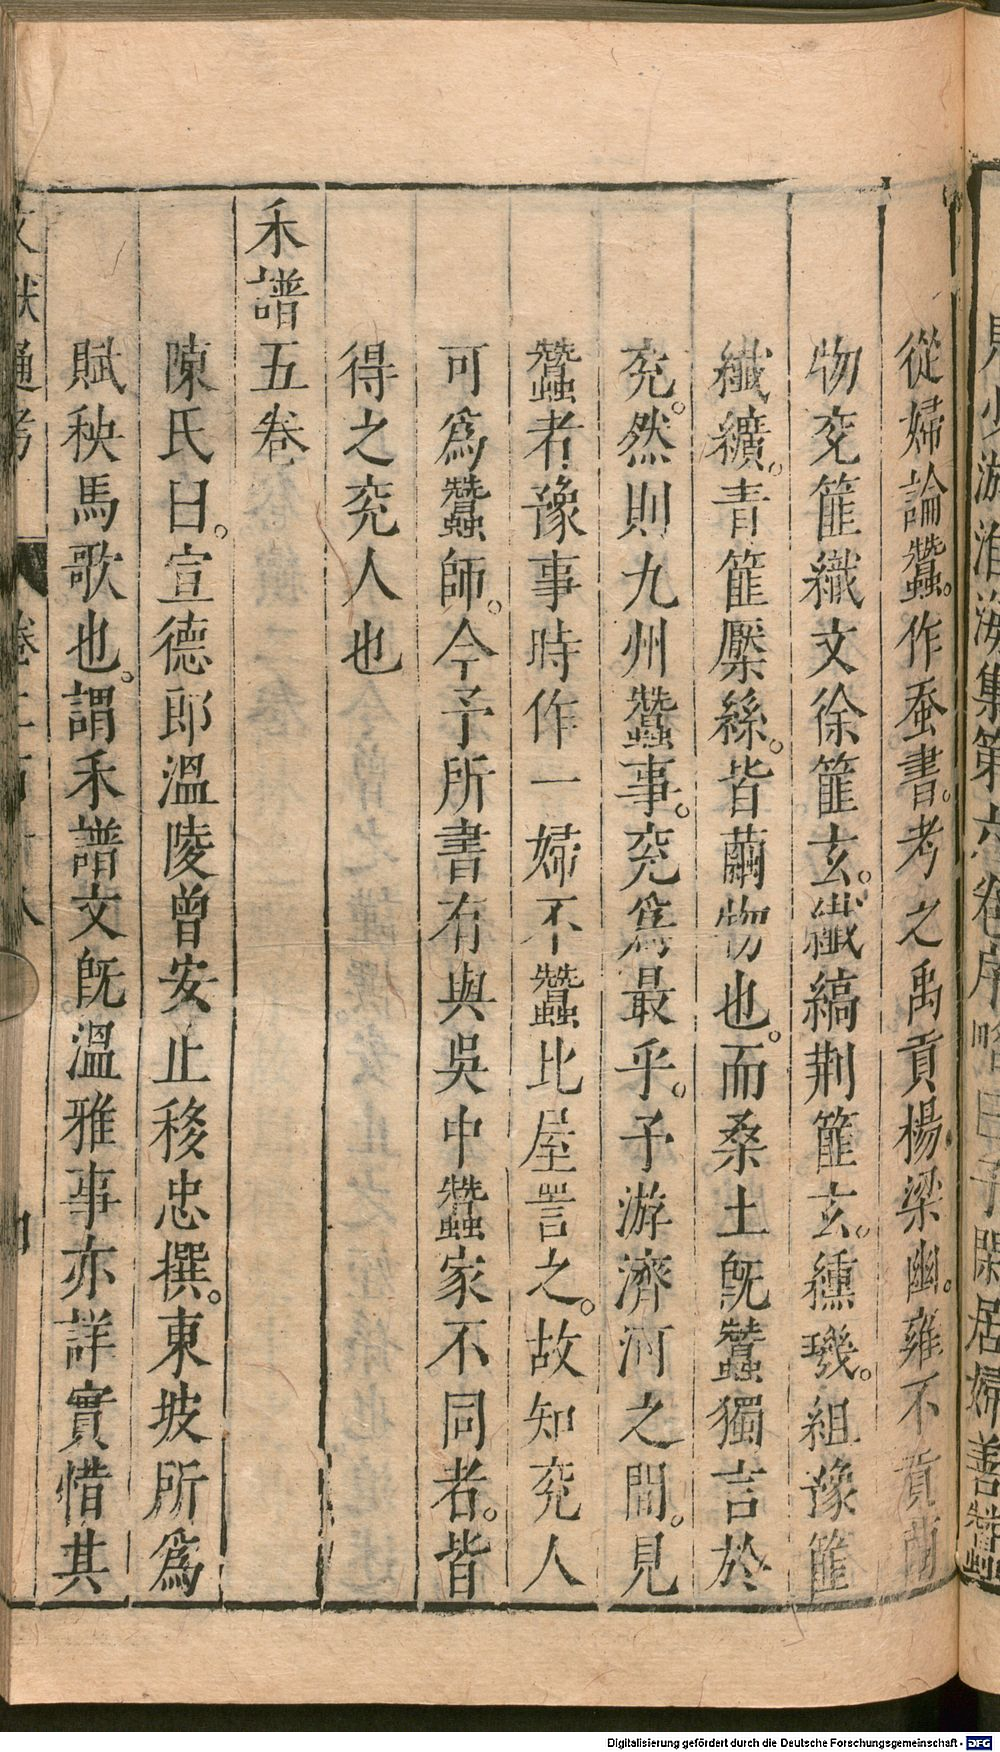 游淮海集第六卷序略曰予閑居婦善蠶
從婦論蠶。作蚕書。考之禹貢楊梁幽。雍不貢繭
物兖篚織文徐篚玄。纖縞荆篚玄。纁璣。組豫篚
纖纊。青篚檿絲。皆繭物也。而桑土旣蠶獨言於
兖。然則九州蠶事。兖爲最乎。予游濟河之間。見
蠶者豫事時作一婦不蠶比屋詈之。故知兖人
可爲蠶師。今予所書有與吳中蠶家不同者。皆
得之兖人也
禾譜五卷
陳氏曰。宣德郎溫陵曾安止移忠撰。東坡所爲
賦秧馬歌也。謂禾譜文旣溫雅事亦詳實惜其
文獻通考
Digitalisierung gefördert durch die Deutsche Forschungsgemeinschaft - DFG